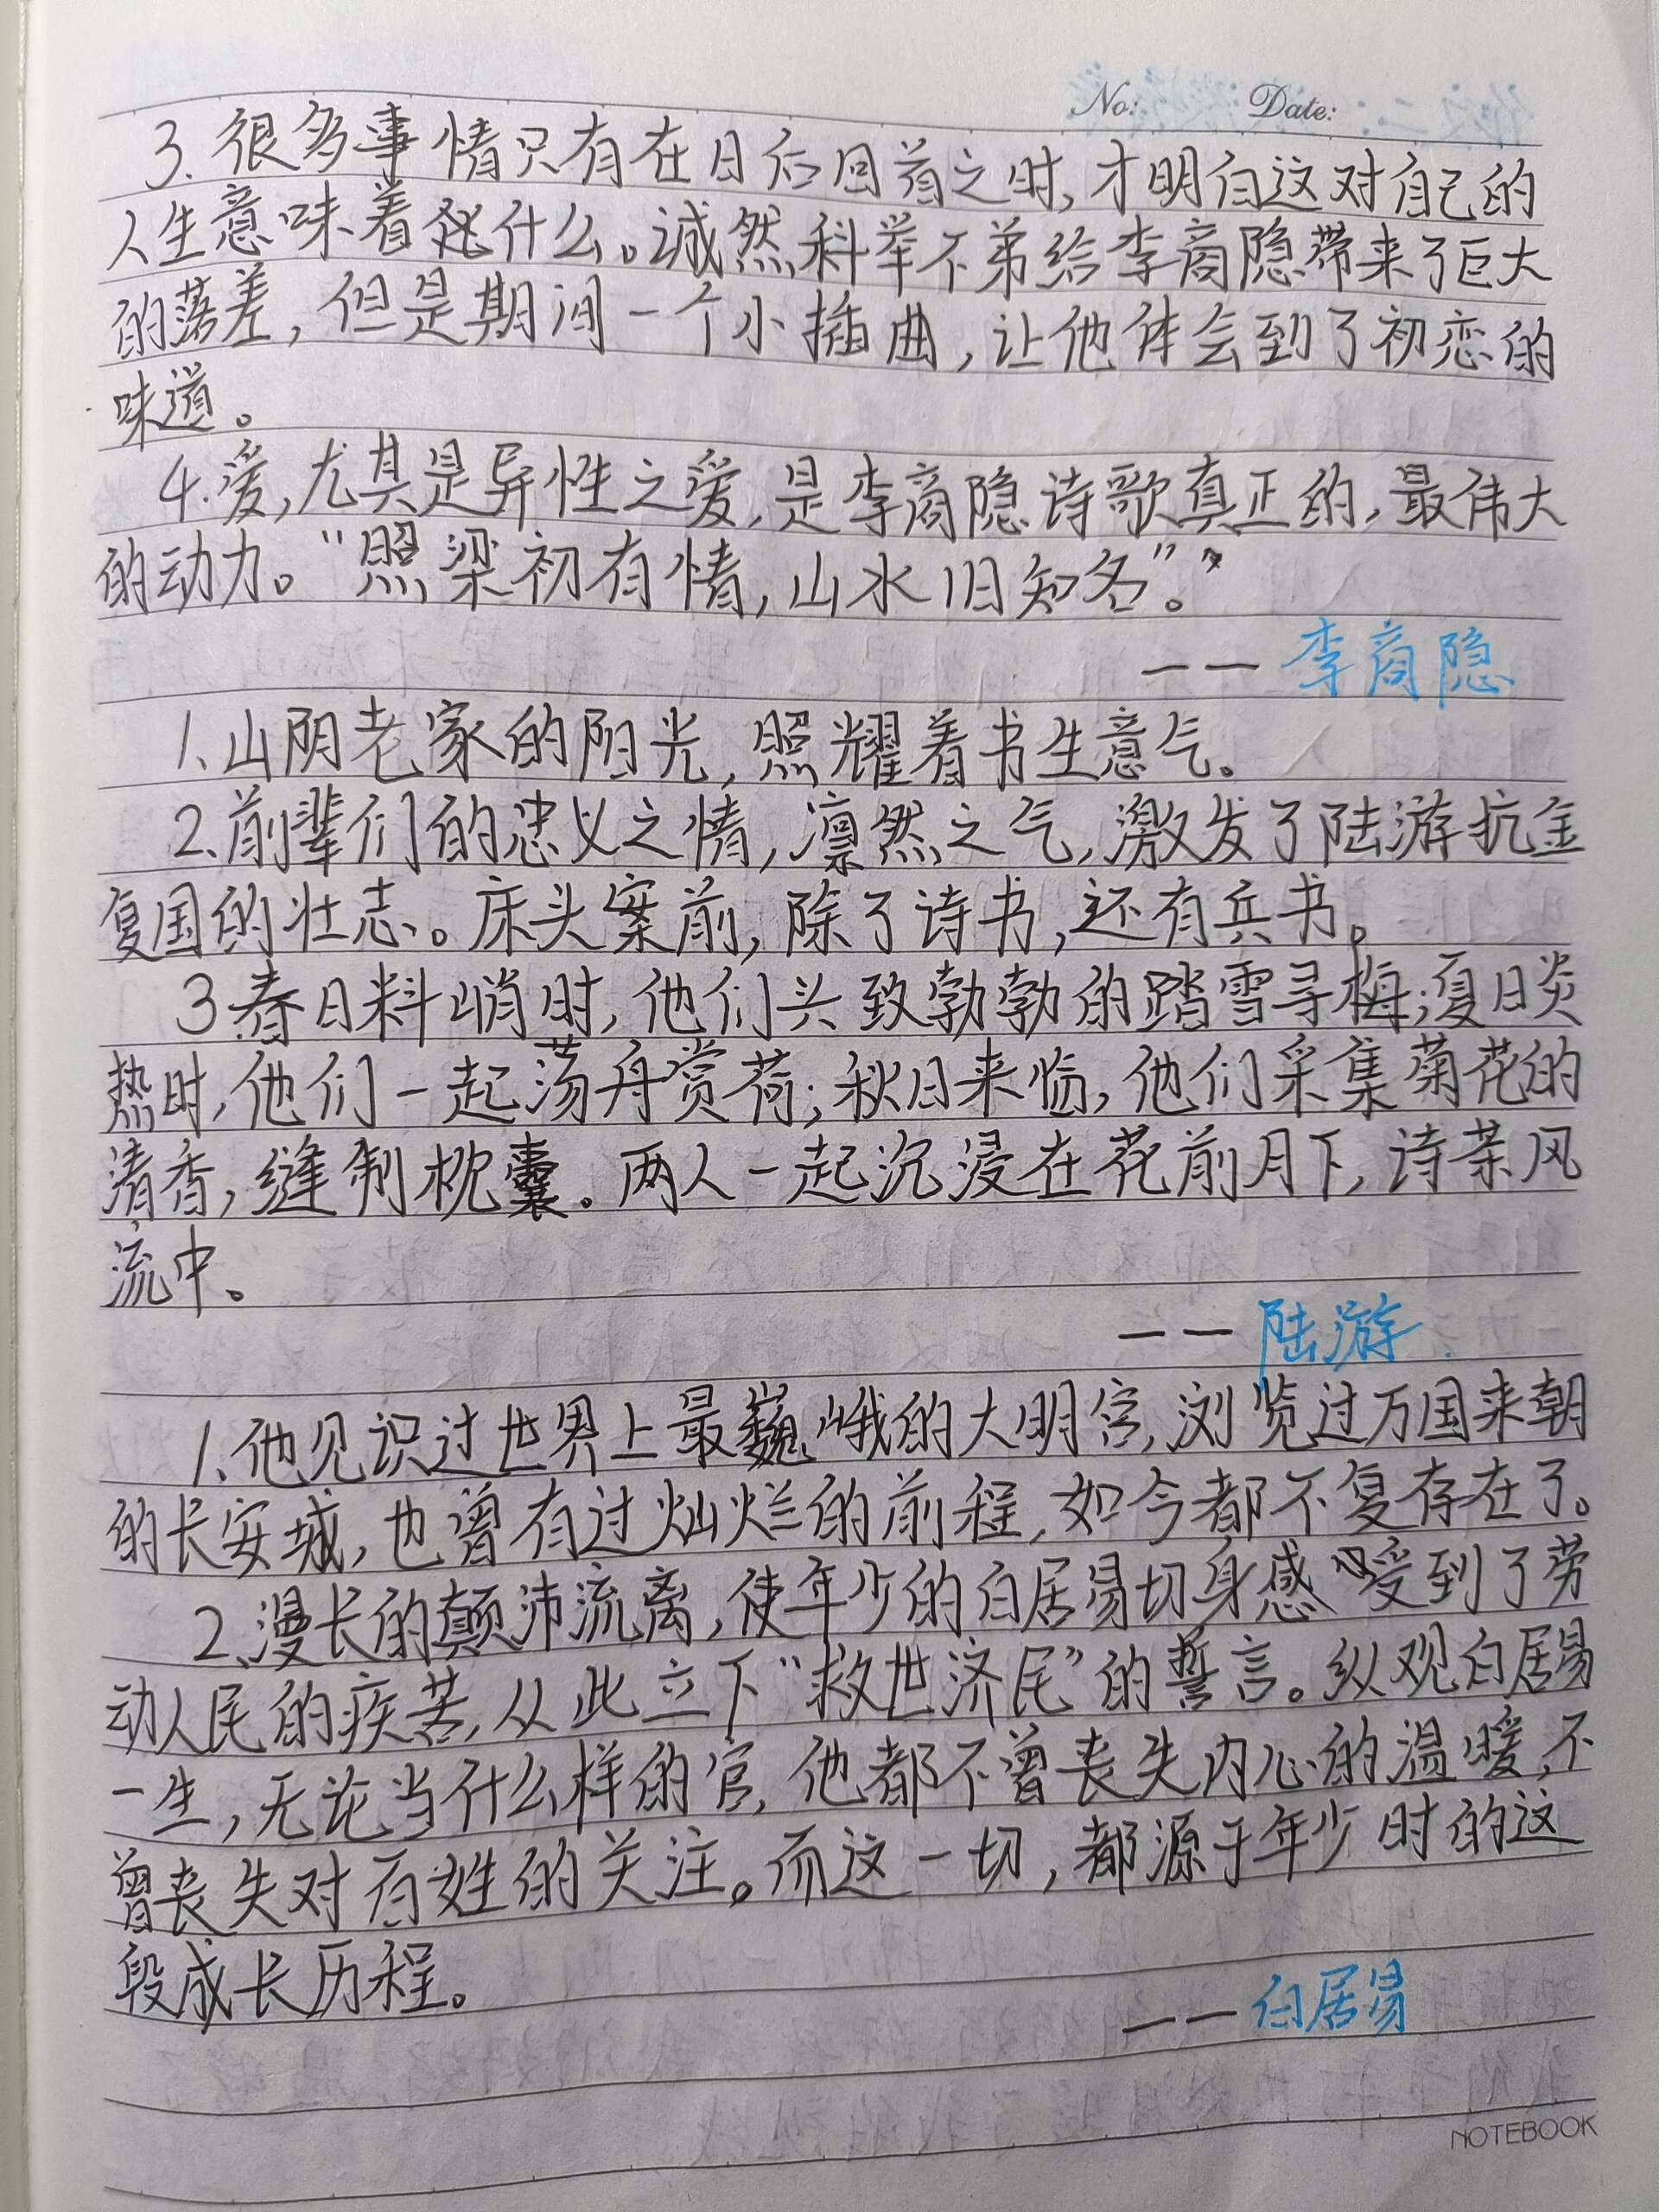 No: Date:
3. 很多事情只有在日后回首之时,才明白这对自己的
人生意味着什么。诚然科举不弟给李商隐带来了巨大
的落差,但是期间一个小插曲,让他体会到了初恋的
味道。
4. 爱,尤其是异性之爱,是李商隐诗歌真正的,最伟大
的动力。“照梁初有情,山水旧知名”。”
—— 李商隐
1、山阴老家的阳光,照耀着书生意气。
2、前辈们的忠义之情,凛然之气,激发了陆游抗金
复国的壮志。床头案前,除了诗书,还有兵书。
3 春日料峭时,他们兴致勃勃的踏雪寻梅;夏日炎
热时,他们一起荡舟赏荷;秋日来临,他们采集菊花的
清香,缝制枕囊。两人一起沉浸在花前月下,诗茶风
流中。
—— 陆游
1、他见识过世界上最巍峨的大明宫,浏览过万国来朝
的长安城,也曾有过灿烂的前程,如今都不复存在了。
2、漫长的颠沛流离,使年少的白居易切身感受到了劳
动人民的疾苦,从此立下“救世济民”的誓言。纵观白居易
一生,无论当什么样的官,他都不曾丧失内心的温暖,不
曾丧失对百姓的关注。而这一切,都源于年少时的这
段成长历程。
—— 白居易
NOTEBOOK